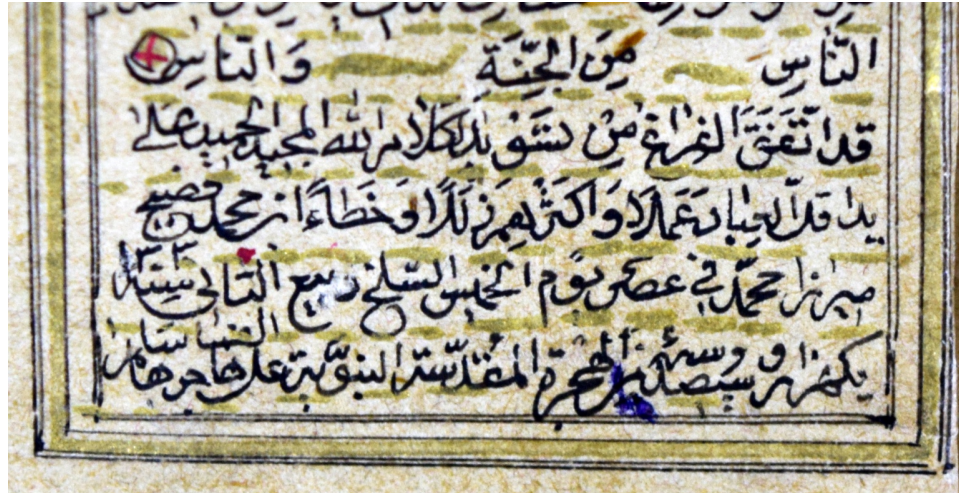 النَّاسِ مِنَ الْجِنَّةِ وَ النَّاسِ
قد اتّفق الفراغ من تسويد كلام الله المجيد الحميد على
يد اقلّ العباد عملًا و اكثرهم زللًا و خطاءً ابن محمد فصيح
ميرزا محمّد في عصر يوم الخميس السلخ ربيع الثانى سنة
يكهزار و سيصد و سه من الهجرة المقدّسة النبويّة على هاجرها